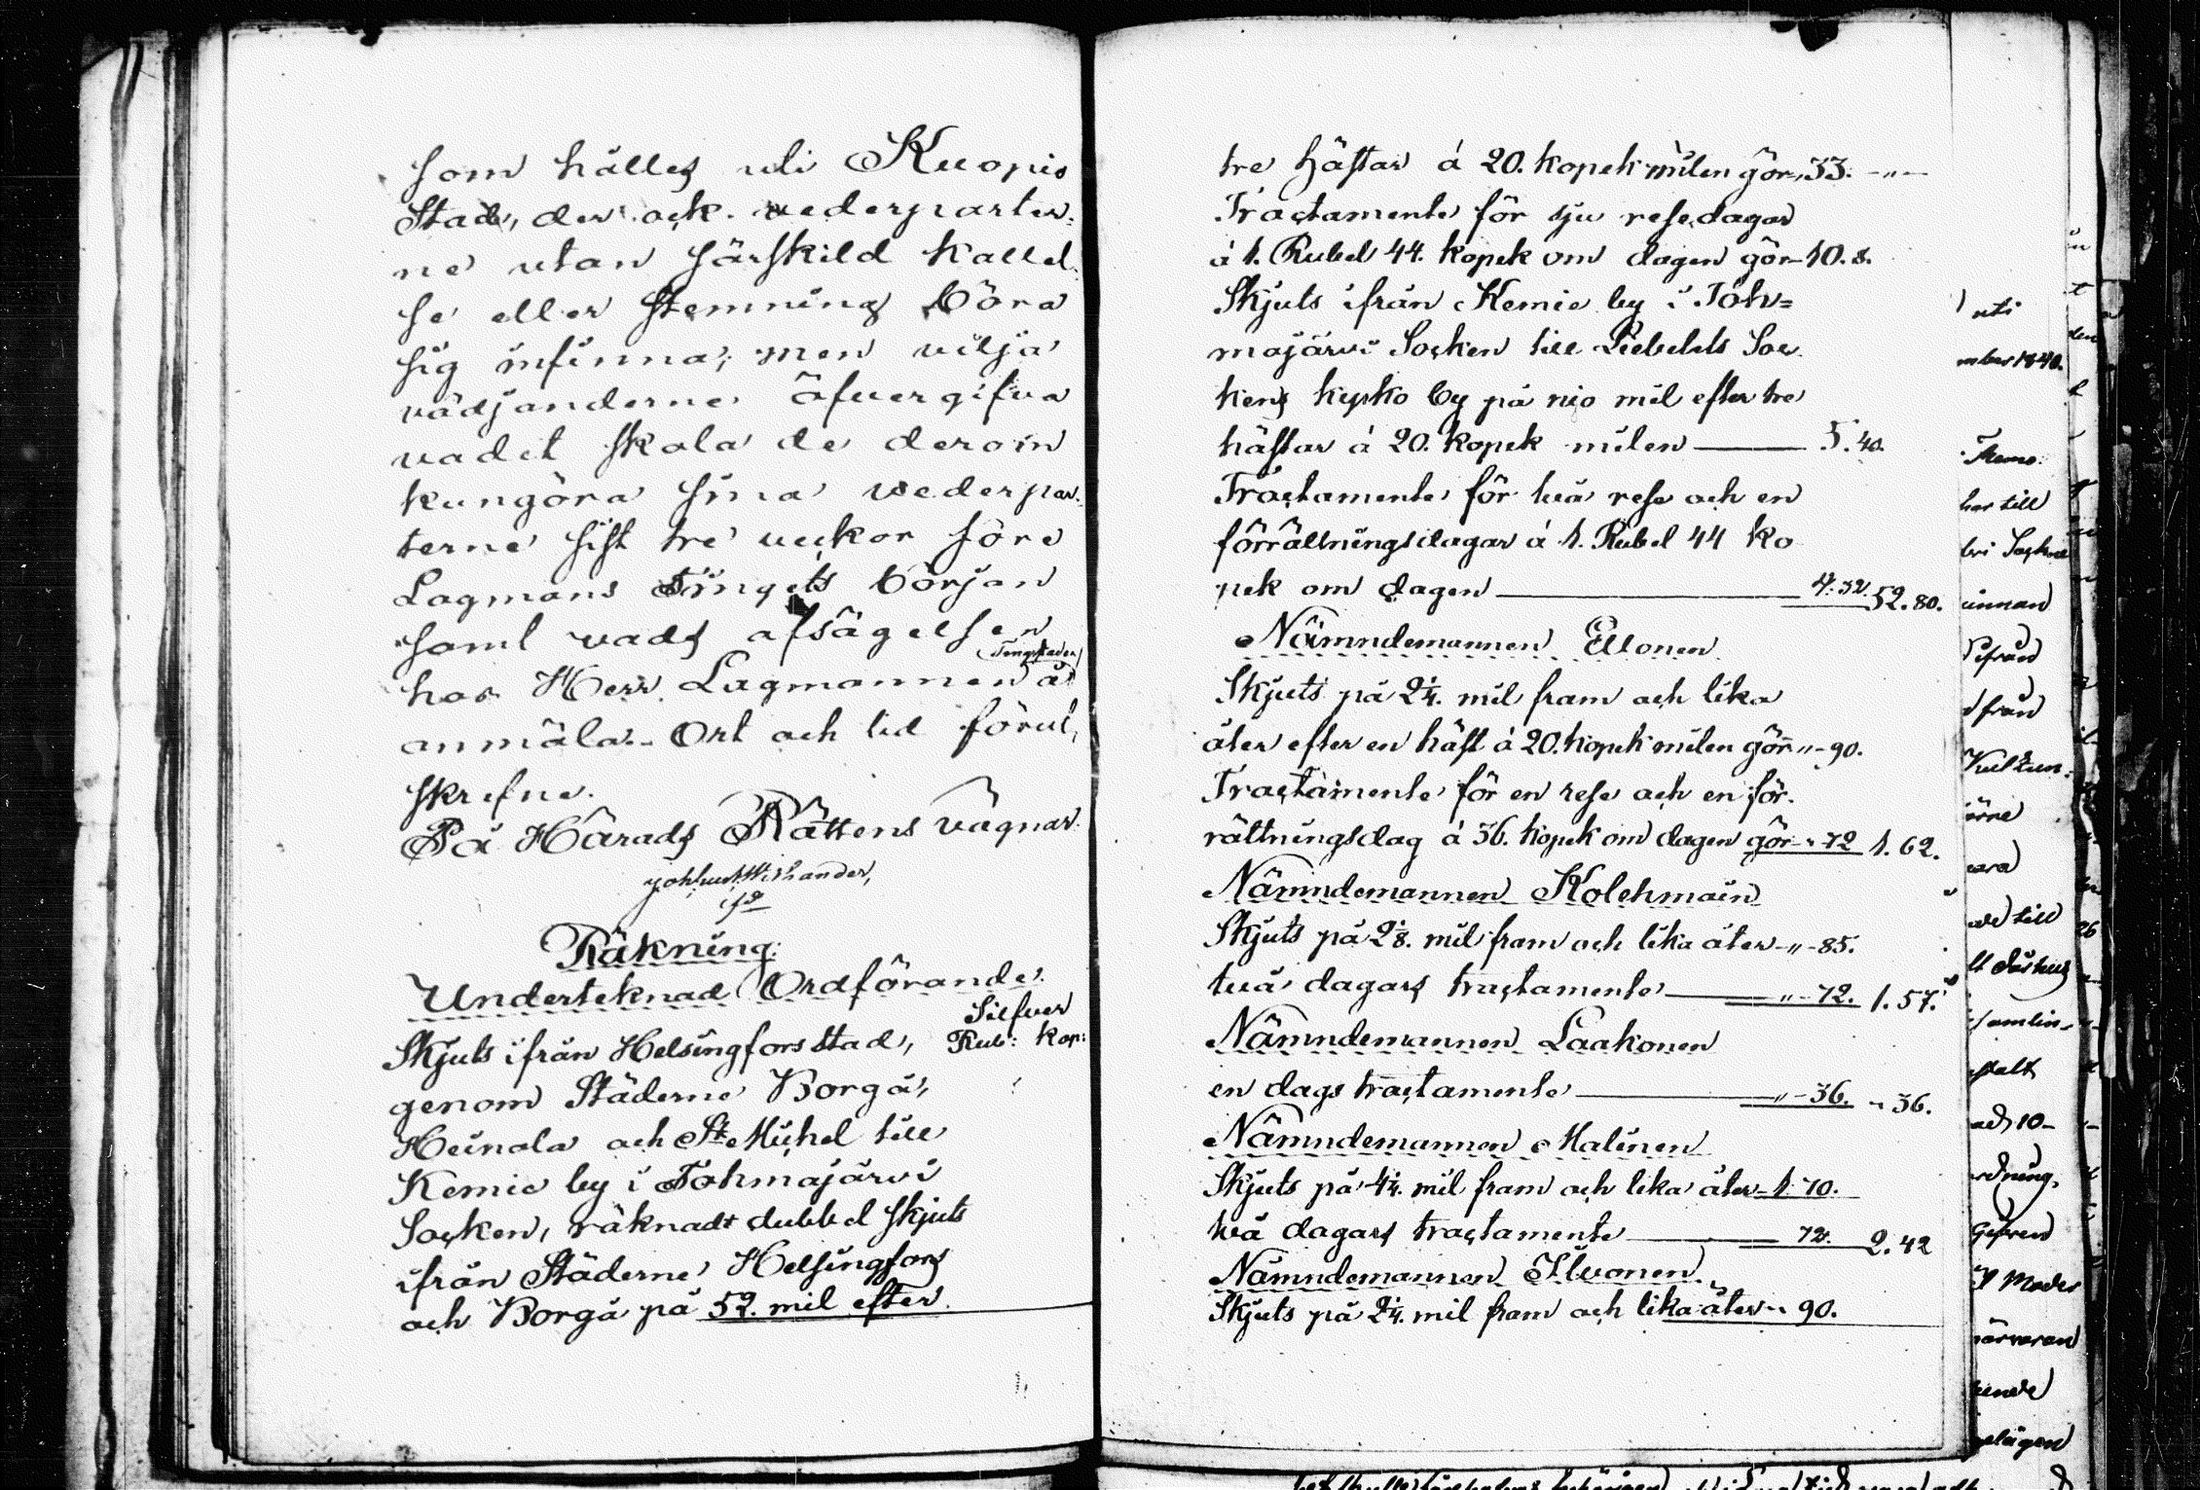 som hålles uti Kuopio
Stad, der ock vederparter-
ne utan särskild kallel-
se eller stemning böra
sig infinna; men vilja
vädjanderne öfvergifva
vadet skola de derom
kungöra sina vederpar-
terne sist tre veckor före
Lagmans Tingets början
samt vads afsägelsen
hos Herr Lagmannen å
Tingstaden
anmäla. Ort och tid förut,
skrefne.
På Härads Rättens vägnar.
Räkning:
Underteknad Ordförande.
Silfver
Skjuts ifrån Helsingfors stad, Rub: kop:
genom Städerne Borgå,
Heinola och St Michel till
Kemie by i Tohmajärvi
Socken, räknadt dubbel skjuts
ifrån Städerne Helsingfors
och Borgå på 52. mil efter
tre hästar á 20. kopek milen gör 33. -"-
Tractamente för sju resedagar
á 1. Rubel 44. kopek om dagen gör 10. 8.
Skjuts ifrån Kemie by i Toh=
majärvi Socken till Liebelits Soc
kens kypko by på nio mil efter tre
hästar á 20. kopek milen 5. 40.
Tractamente för två rese och en
förrättningsdagar á 1. Rubel 44 ko
pek om dagen 4. 32. 52. 80.
Nämndemannen Ellonen
Skjuts på 2¼. mil fram och lika
åter efter en häst á 20. kopek milen gör " 90.
Tractamente för en rese och en för-
rättningsdag á 36. kopek om dagen gör " 72 1. 62.
Nämndemannen Kolehmain
Skjuts på 2⅛. mil fram och lika åter " 85.
två dagars tractamente " 72. 1. 57.
Nämndemannen Laakonen
en dags tractamente " 36. " 36.
Nämndemannen Malinen
Skjuts på 4¼. mil fram och lika åter 1. 70.
två dagars tractamente 72. 2. 42
Nämndemannen Ilvonen
Skjuts på 2¼. mil fram och lika åter " 90.
uti
1840.
har till
innan
ifrån
från
till